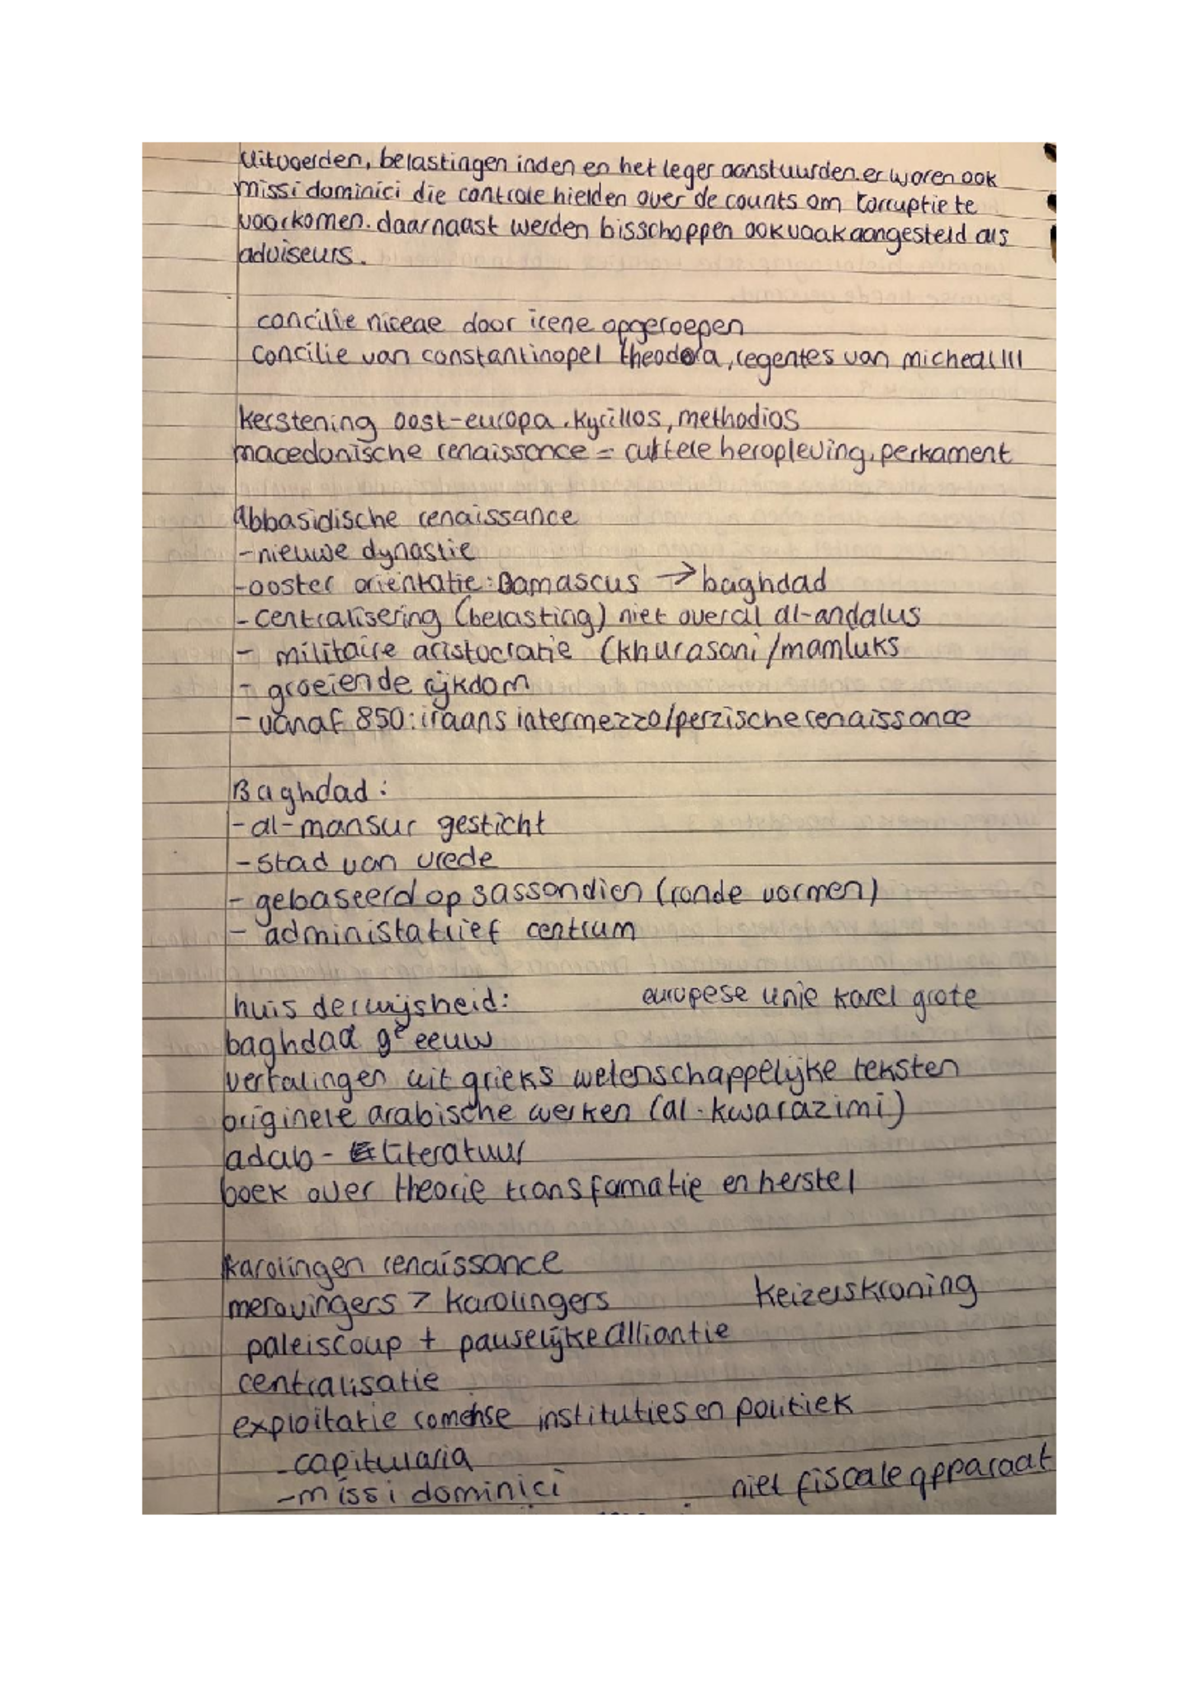 uitvoerden, belastingen inden en het leger aanstuurden. er waren ook
missi dominici die controle hielden over de counts om corruptie te
voorkomen. daarnaast werden bisschoppen ook vaak aangesteld als
adviseurs.
concilie niceae door irene opgeroepen
concilie van constantinopel theodora, regentes van micheal III
kerstening oost-europa. kyrillos, methodios
macedonische renaissance = cultele heropleving, perkament
Abbasidische renaissance
- nieuwe dynastie
- ooster oriëntatie: Damascus → baghdad
- centralisering (belasting) niet overal al-andalus
- militaire aristocratie (khurasani/mamluks
- groeiende rijkdom
- vanaf 850: iraans intermezzo/perzische renaissance
Baghdad:
- al-mansur gesticht
- stad van vrede
- gebaseerd op sassandien (ronde vormen)
- administatriief centrum
huis der wijsheid: europese unie karel grote
baghdad 9e eeuw
vertalingen uit grieks wetenschappelijke teksten
originele arabische werken (al-kwarazimi)
adab - literatuur
boek over theorie transfamatie en herstel
karolingen renaissance
merovingers > karolingers keizerskroning
paleiscoup + pauselijke alliantie
centralisatie
exploitatie romeinse instituties en politiek
- capitularia
- missi dominici niet fiscale apparaat